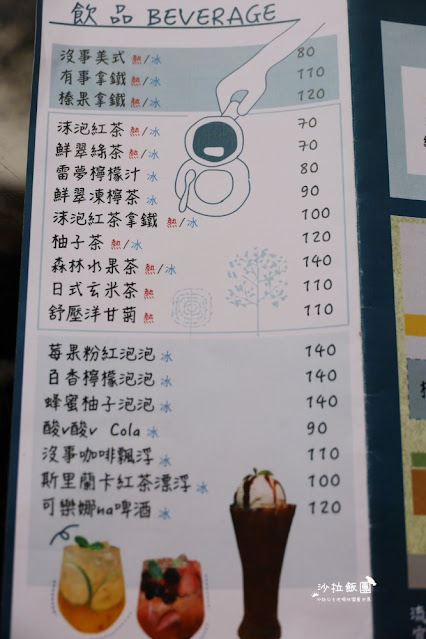 飲品 BEVERAGE
沒事美式 熱/冰 80
有事拿鐵 熱/冰 110
榛果拿鐵 熱/冰 120
沫泡紅茶 熱/冰 70
鮮翠綠茶 熱/冰 70
雷夢檸檬汁 熱/冰 80
鮮翠凍檸茶 冰 90
沫泡紅茶拿鐵 熱/冰 100
柚子茶 熱/冰 120
森林水果茶 熱/冰 140
日式玄米茶 熱 110
舒壓洋甘菊 熱 110
莓果粉紅泡泡 冰 140
百香檸檬泡泡 冰 140
蜂蜜柚子泡泡 冰 140
酸v酸v Cola 冰 90
沒事咖啡飄浮 冰 110
斯里蘭卡紅茶漂浮 冰 100
可樂娜na啤酒 冰 120
沙拉飯團